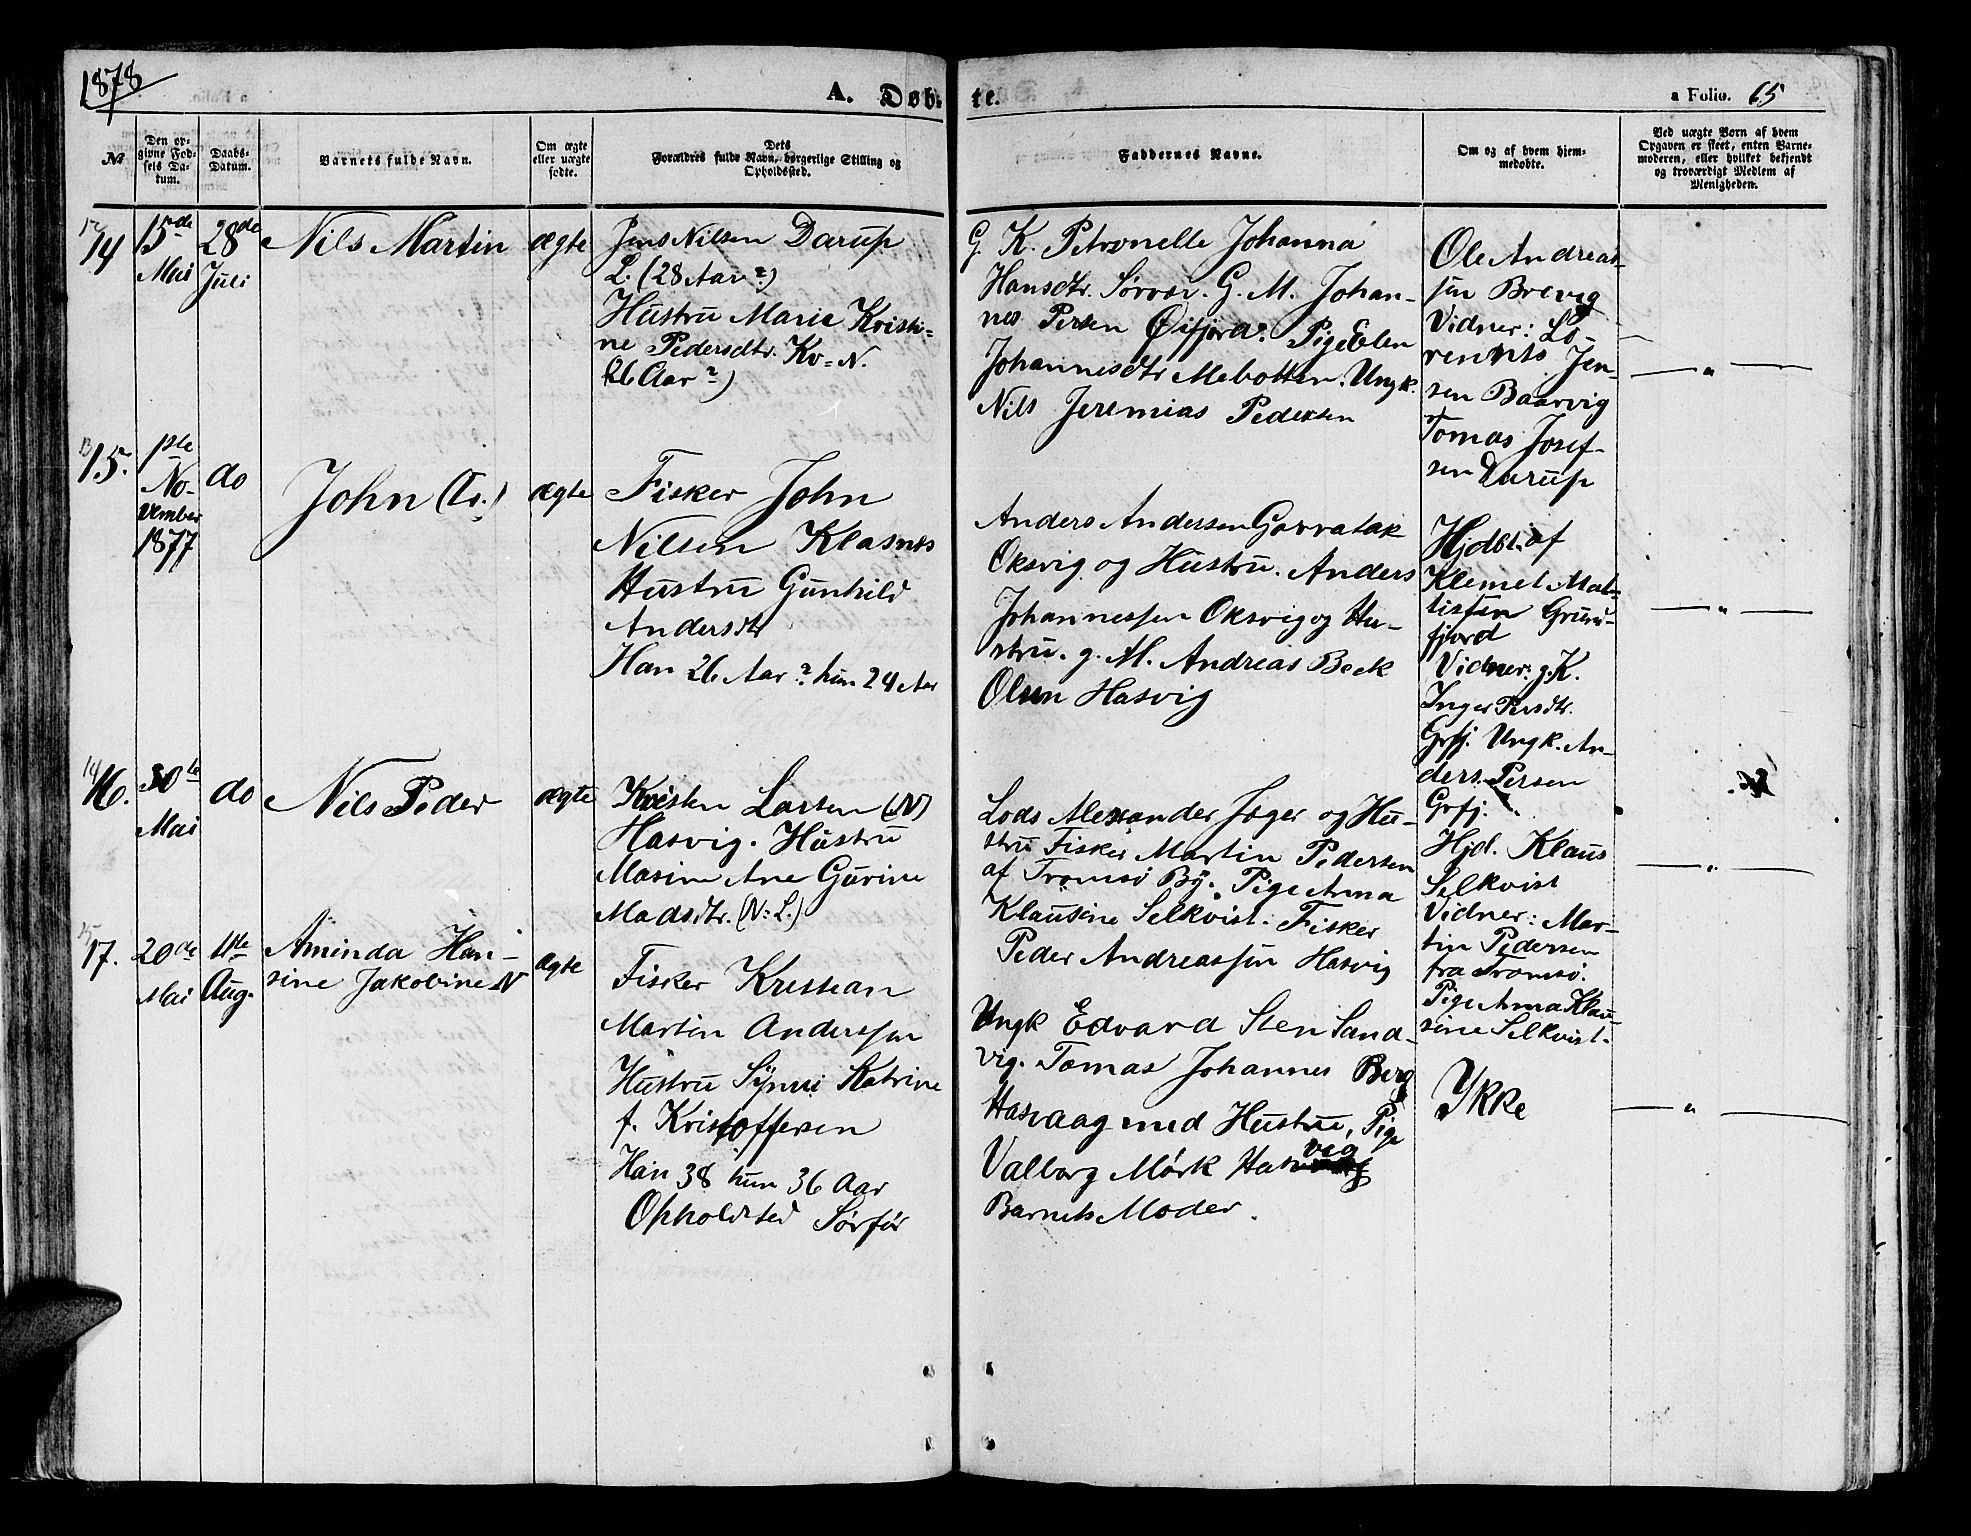 1878
A. Døbte.
a Folio. 65
№
Den opgivne Fødsels Datum.
Daabs-Datum.
Barnets fulde Navn.
Om ægte eller uægte fødte.
Dets Forældres fulde Navn, borgerlige Stilling og Opholdssted.
Faddernes Navne.
Om og af hvem hjemmedøbte.
Ved uægte Børn af hvem Opgaven er skeet, enten Barnemoderen, eller hvilket bekjendt og troværdigt Medlem af Menigheden.
12
14
15de
Mai
28de
Juli
Nils Martin
ægte
Jens Nilsen Darup
L. (28 Aar?)
Hustru Marie Kristi-
ne Pedersdtr. Kv=N.
(26 Aar?)
G. K. Petronelle Johanna
Hansdtr. Sørvær. G. M. Johan-
nes Persen Øifjord. Pige Elen
Johannesdtr Mebotten. Ungk.
Nils Jeremias Pedersen
Ole Andreas-
sen Brevig
Vidner: Lo-
rents Jen-
sen Baarvig
Tomas Josef-
sen Darup
— " —
13
15.
1ste
No-
vember
1877
do
John
ægte
Fisker John
Nilsen Klasnes
Hustru Gunhild
Andersdtr
Han 26 Aar? hun 24 Aar
Anders Andersen Gavvatak
Oksvig og Hustru. Anders
Johannessen Oksvig og Hu-
stru. g. M. Andreas Beck
Olsen Hasvig
Hjdbt. af
Klemet Mat-
tisen Grun-
fjord
Vidner: g. K.
Inger Persdtr.
Grfj. Ungk. An-
ders Persen
Grfj.
— " —
14
16.
30te
Mai
do
Nils Peder
ægte
Kristen Larsen (N)
Hasvig. Hustru
Masine Ane Gurine
Madsdtr. (N:L.)
Lods Alexander Jæger og Hu-
stru Fisker Martin Pedersen
af Tromsø By. Pige Anna
Klausine Selkvist. Fisker
Peder Andreassen Hasvig
Hjd. Klaus
Selkvist
Vidner: Mar-
tin Pedersen
fra Tromsø.
Pige Anna Klau-
sine Selkvist.
— " —
15
17.
20de
Mai
4te
Aug.
Aminda Han-
sine Jakobine N
ægte
Fisker Kristian
Martin Anderssen
Hustru Synni Katrine
f. Kristoffersen
Han 38 hun 36 Aar
Opholdsted Sørfjr
Ungk Edvard Sten Sand-
vig. Tomas Johannes Berg
Hasvaag med Hustru, Pige
Valborg Mørk Hasvig
Barnets Moder.
Ykke
— " —